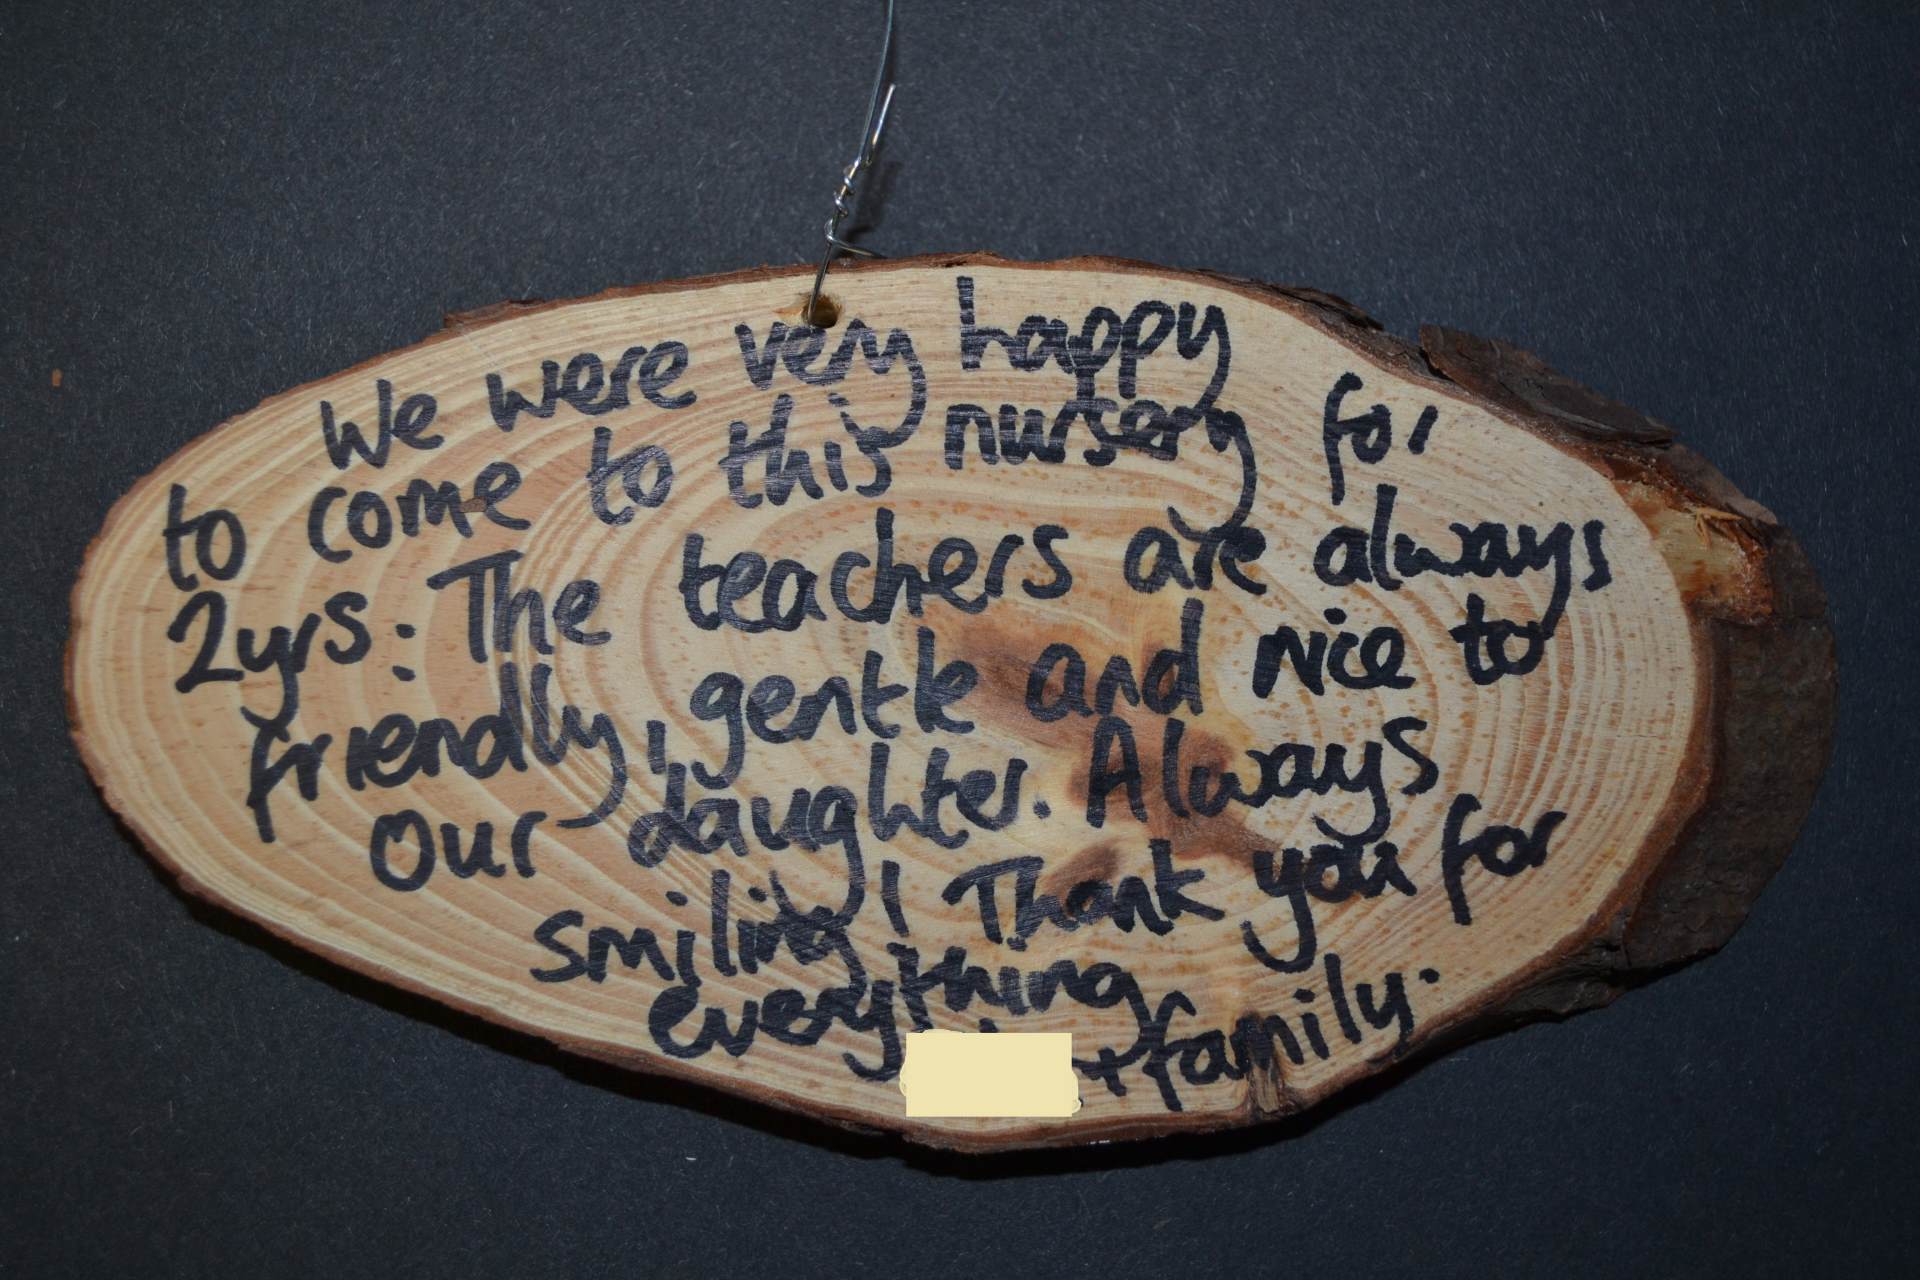 We were very happy
to come to this nursery for
2yrs: The teachers are always
friendly, gentle and nice to
our daughter. Always
smiling! Thank you for
everything
+ family.